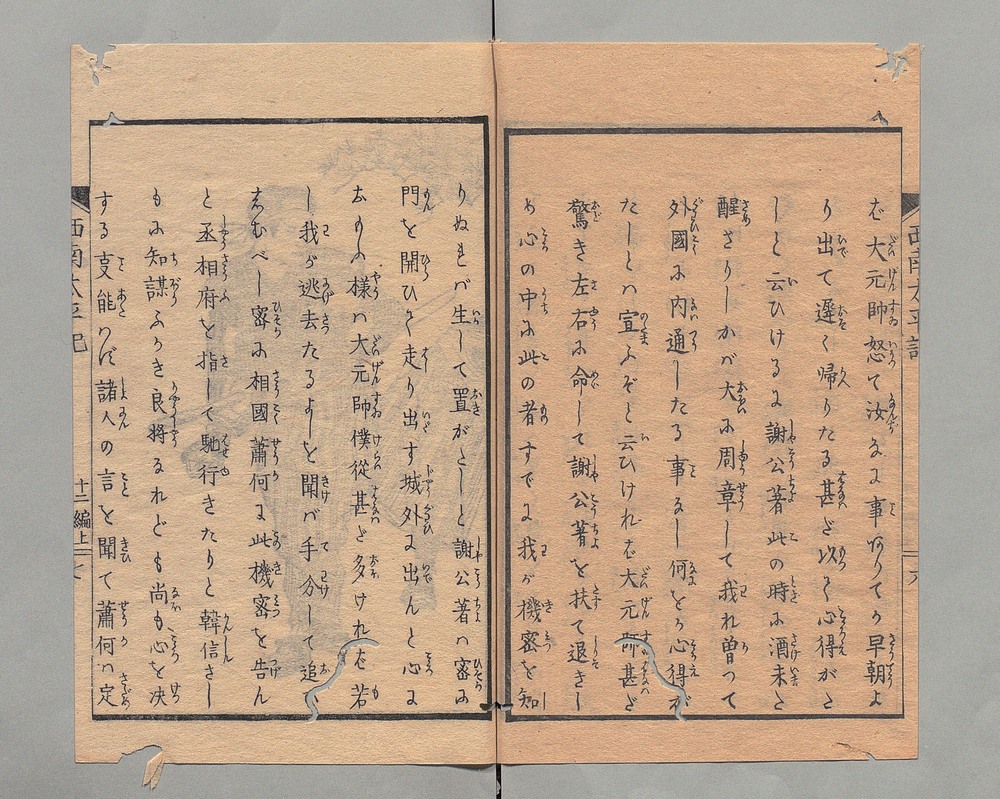 ば大元帥怒て汝なに事ありてか早朝よ
り出て遅く帰りたる甚だ以て心得がた
しと云ひけるに謝公著此の時に酒未た
醒さりしかバ大に周章して我れ曽つて
外國に内通したる事なし何とて心得が
たしとハ宣ふぞと云ひれば大元帥甚だ
驚き左右に命して謝公著を扶て退きし
め心の中に此の者すでに我が機密を知
りぬれバ生して置がたしと謝公著ハ密に
門を開ひて走り出す城外に出んと心に
様ハ大元帥僕從甚だ多ければ若
し我が逃去たるよしを聞バ手分して追
しむべし密に相國蕭何に此機密を告ん
と丞相府を指して馳行きたりと韓信さし
もに知謀ふかき良将なれども尚も心を决
する事能ハず諸人の言を聞て蕭何ハ定
西南太平記
十二編上